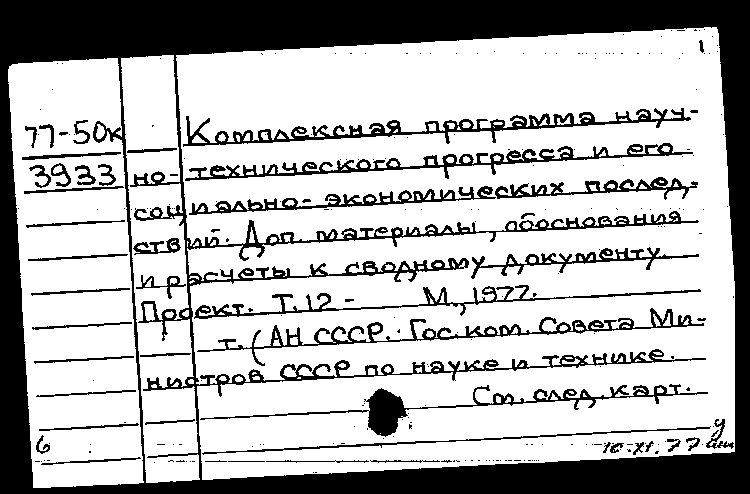 1
77-50к Комплексная программа науч-
3933 но-технического прогресса и его
социально-экономических послед-
ствий. Доп. материалы, обоснования
и расчеты к сводному документу.
Проект. Т.12 - М., 1977.
т. (АН СССР. Гос. ком. Совета Ми-
нистров СССР по науке и технике.
См. след. карт.
6 10.XI.77